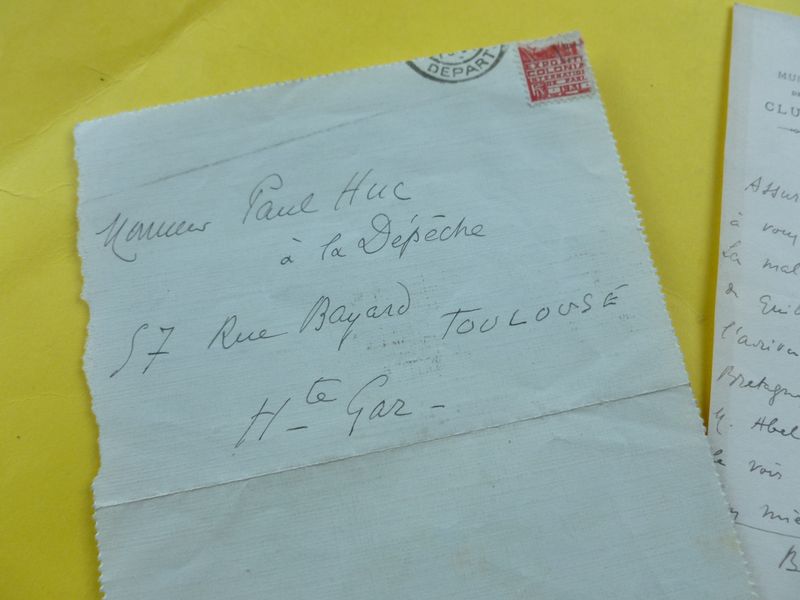 DÉPART
EXPO
COLONIA
INTERNATION
DE PARI
Monsieur Paul Huc
à la Dépêche
57 Rue Bayard TOULOUSE
Hte Gar -
MU
CLU
Assur
à vous
La mal
l'arriv
Bretagne
M. Abel
le vois
mie
B